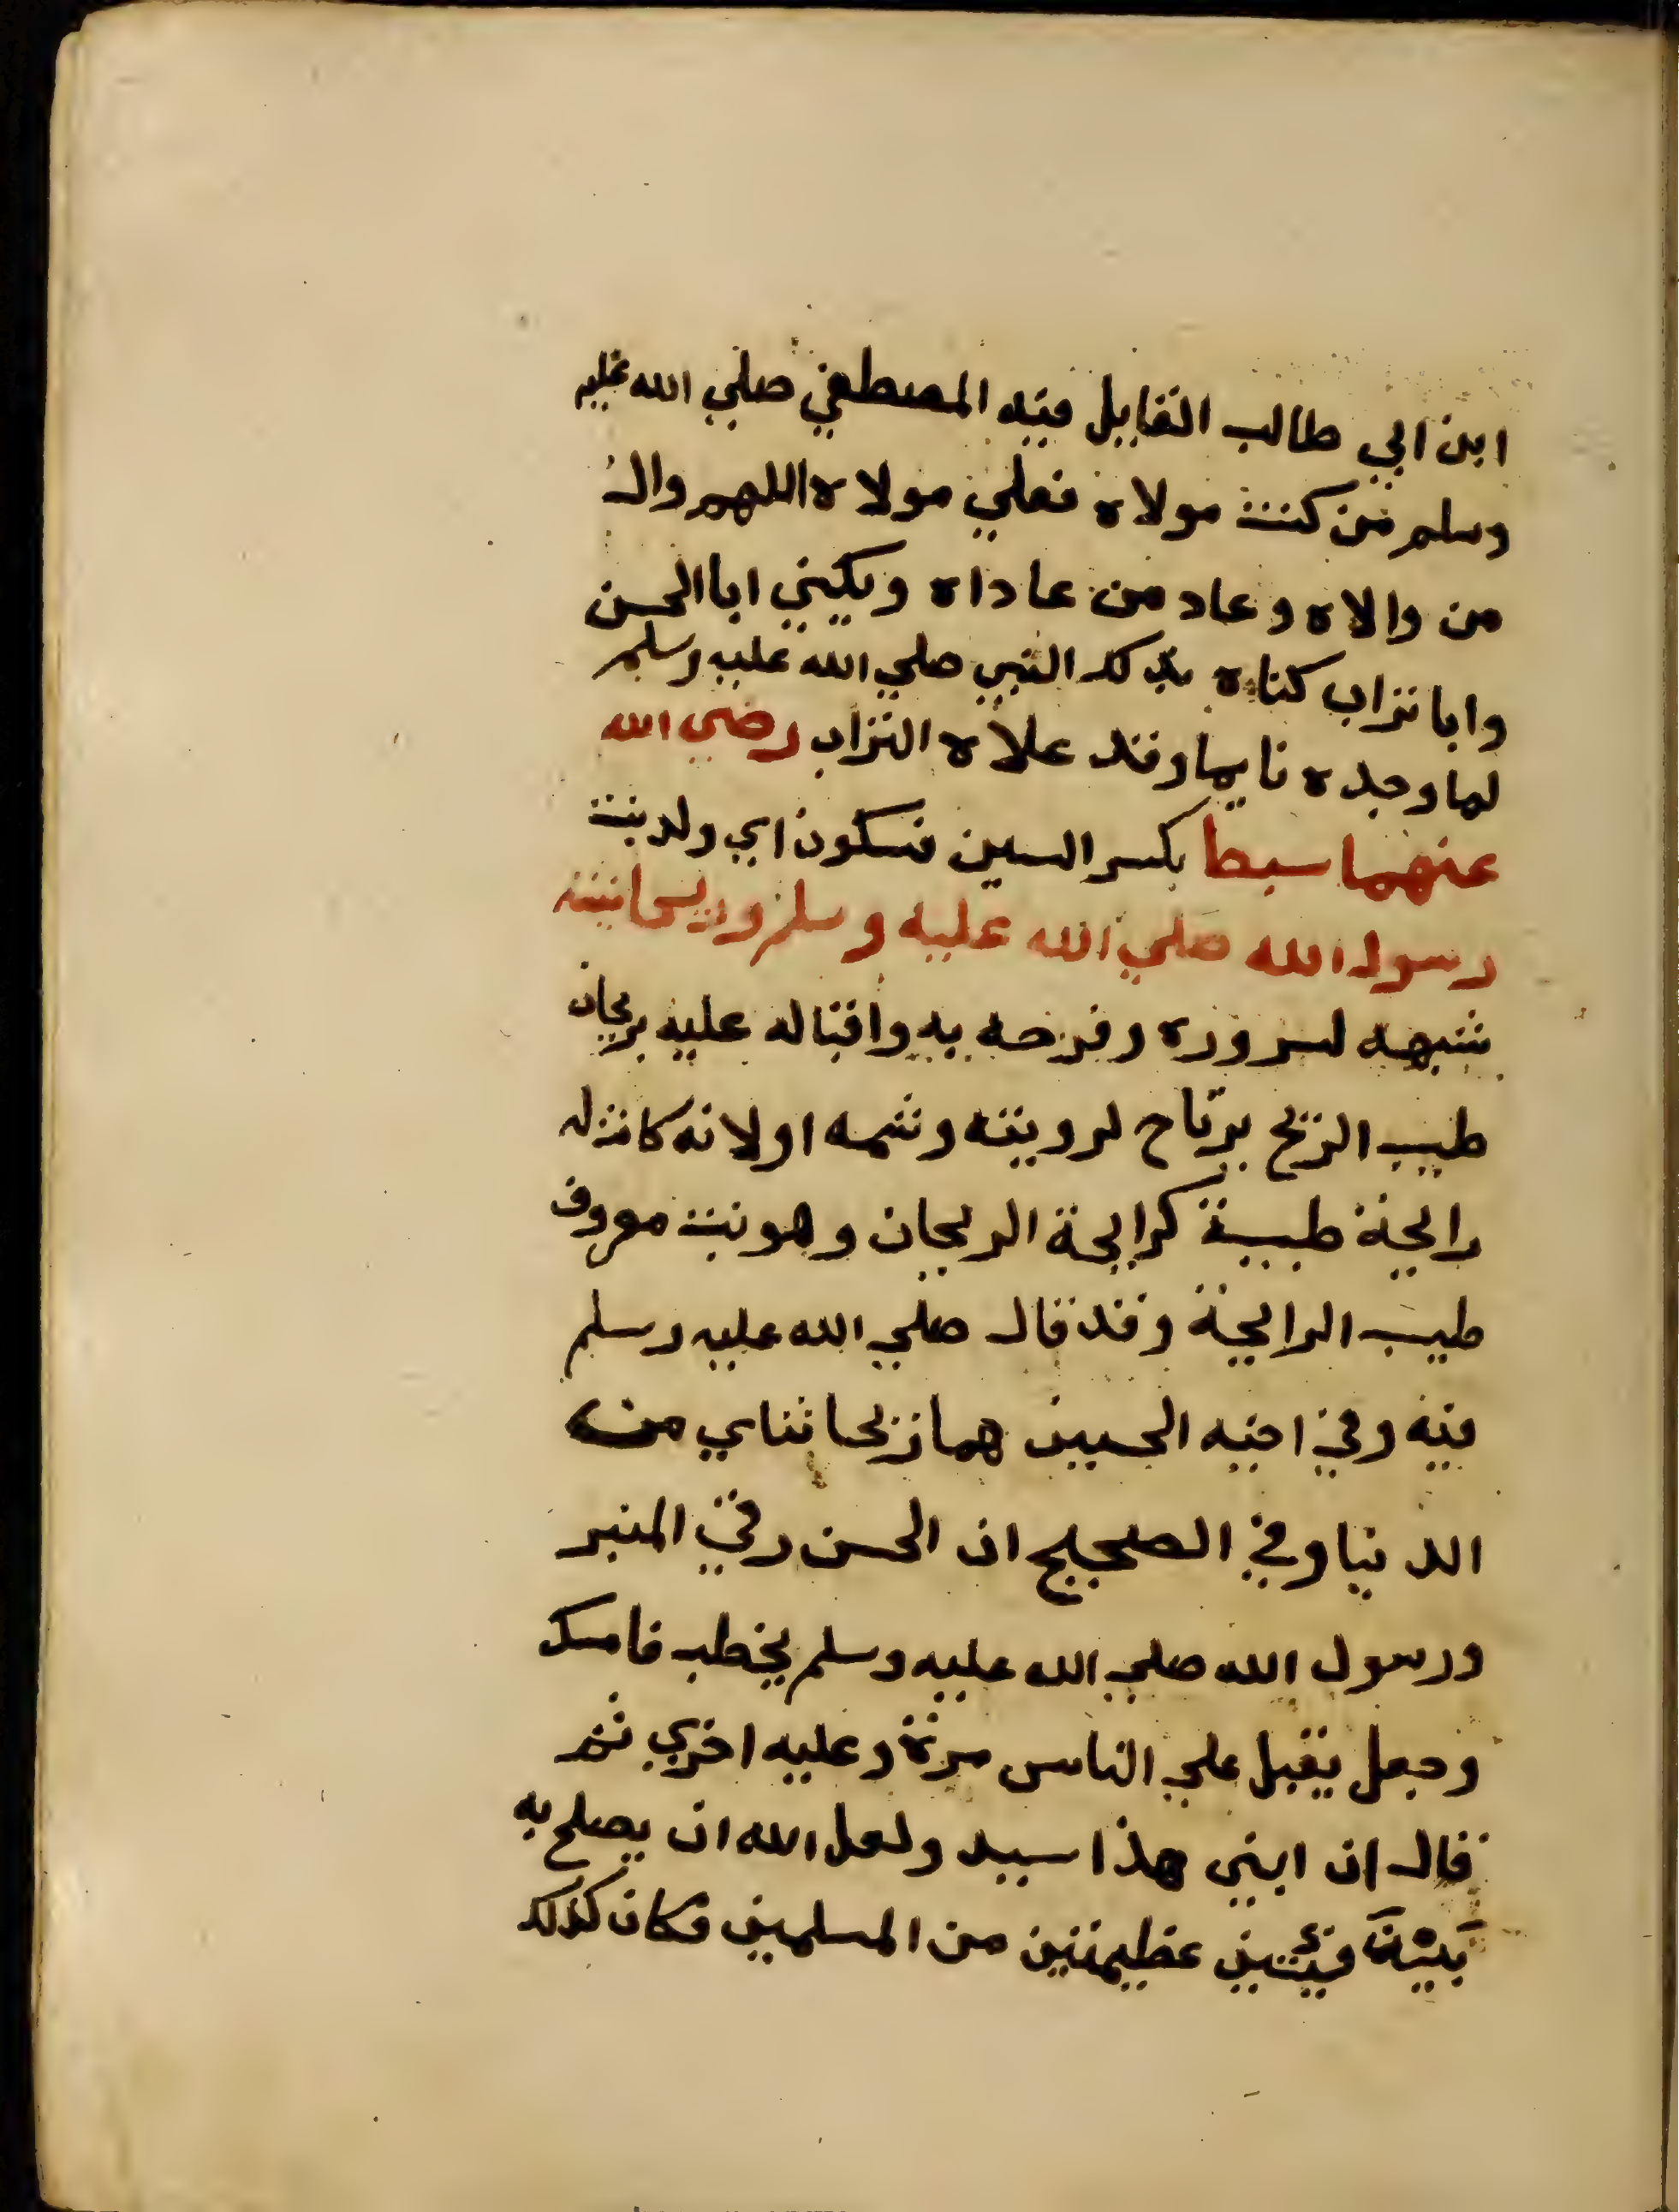 ابن ابي طالب القايل فيه المصطفي صلي الله عليه
وسلم من كنت مولاه فعلي مولاه اللهم وال
من والاه وعاد من عاداه ويكني ابا الحسن
وابا تراب كناه بذلك النبي صلي الله عليه وسلم
لما وجده نايما وقد علاه التراب رضي الله
عنهما سبط بكسر السين فسكون اي ولد بنت
رسول الله صلي الله عليه وسلم وريحانته
شبهه لسروره وفرحه به واقباله عليه بريحان
طيب الريح يرتاح لرويته وشمه او لانه كانت له
رايحة طيبة كرايحة الريحان وهو نبت معروف
طيب الرايحة وقد قال صلي الله عليه وسلم
فيه وفي اخيه الحسين هما ريحانتاي من
الدنيا وفي الصحيح ان الحسن رقي المنبر
ورسول الله صلي الله عليه وسلم يخطب فامسك
وجعل يقبل علي الناس مرة وعليه اخري ثم
قال ان ابني هذا سيد ولعل الله ان يصلح به
بَيْنَ فئتين عظيمتين من المسلمين فكان كذلك